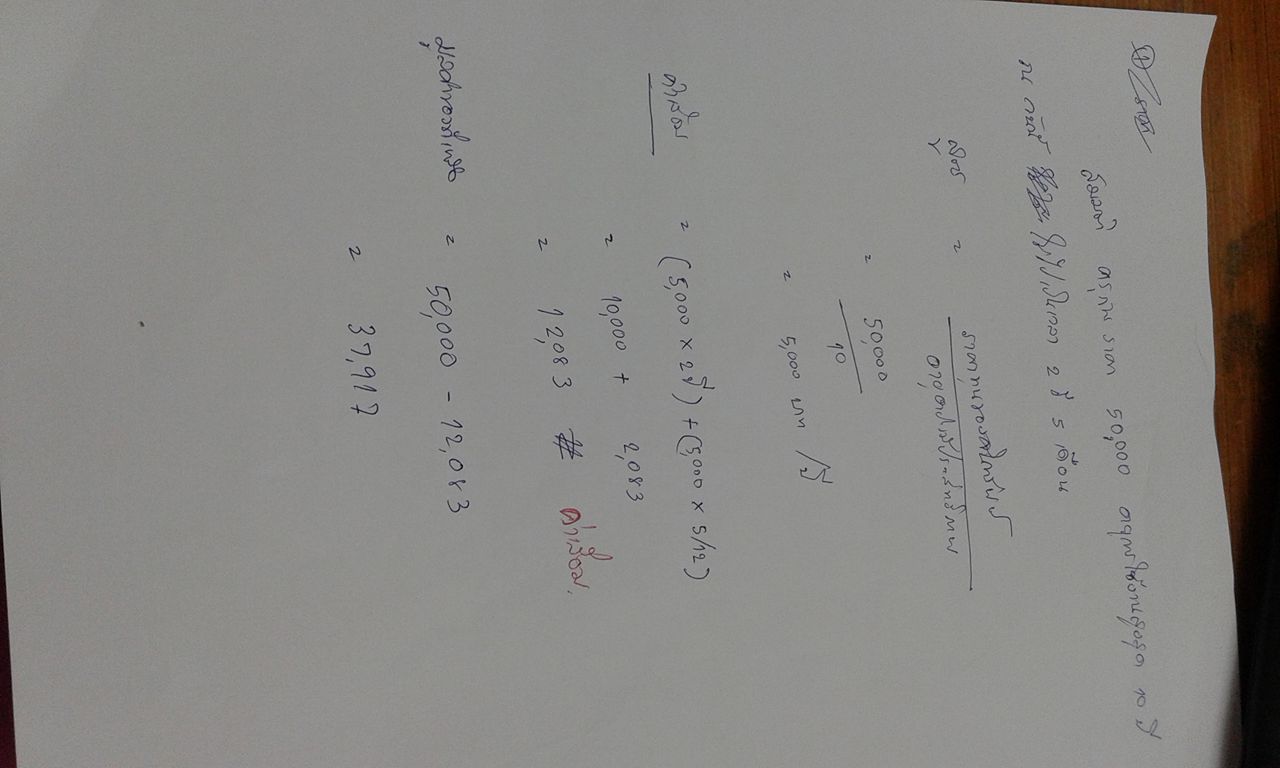 ① ราคา
สมมติ ครุภัณ ราคา 50,000 อายุการใช้งานสูงสุด 10 ปี
ณ วันนี้ ใช้ไปเป็นเวลา 2 ปี 5 เดือน
สูตร = ราคาทุนของสินทรัพย์
อายุการใช้ประสิทธิภาพ
= 50,000
10
= 5,000 บาท /ปี
ค่าเสื่อม = (5,000 x 2ปี) + (5,000 x 5/12)
= 10,000 + 2,083
= 12,083 # ค่าเสื่อม.
มูลค่าของที่เหลือ = 50,000 - 12,083
= 37,917